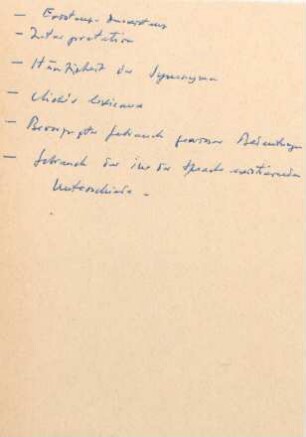 — Interpretation
— Häufigkeit der Synonyme
— clichés lexicaux
— Bevorzugter Gebrauch gewisser Bedeutungen
— Gebrauch der in der Sprache existierenden
Unterschiede.